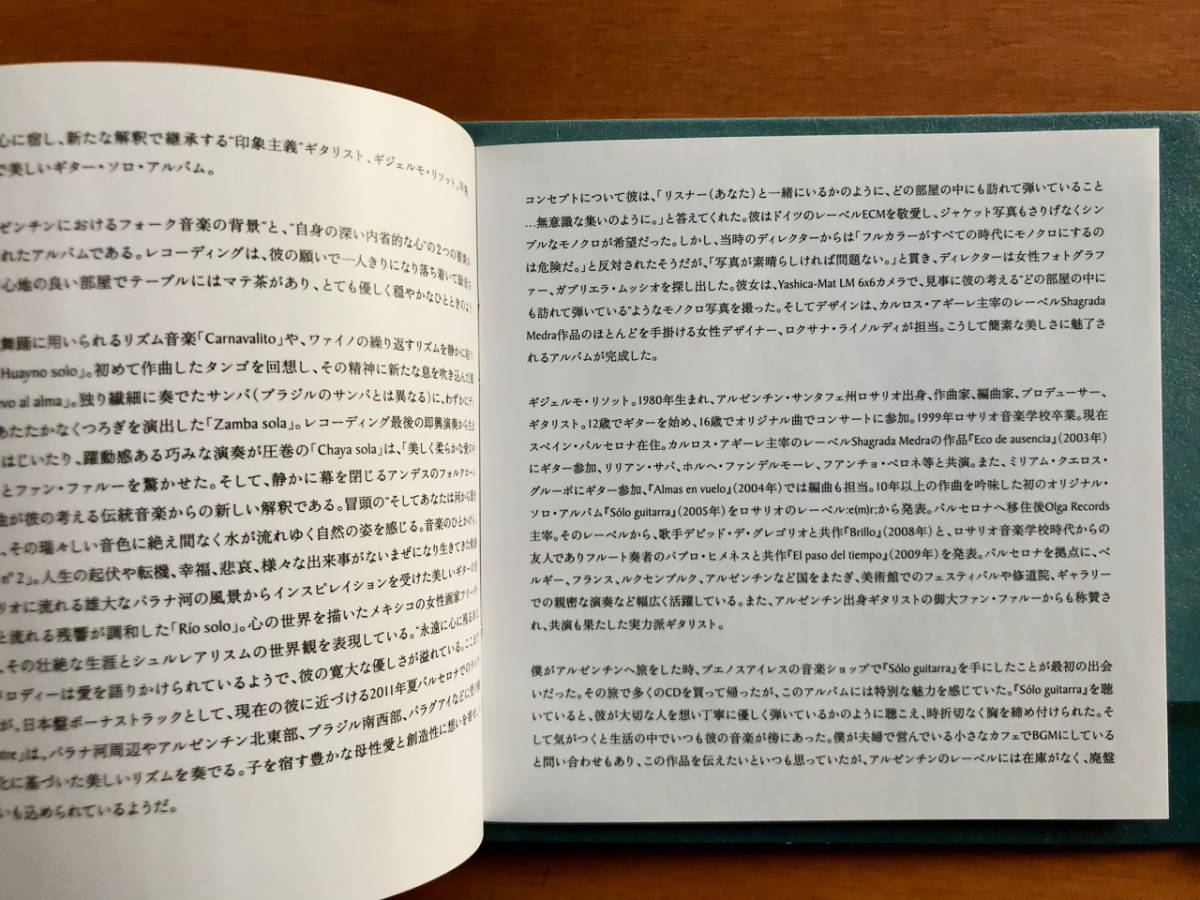 心に宿し、新たな解釈で継承する“印象主義”ギタリスト、ギジェルモ・リソット。
で美しいギター・ソロ・アルバム。
ゼンチンにおけるフォーク音楽の背景”と、“自身の深い内省的な心”の2つの要素が
れたアルバムである。レコーディングは、彼の願いで一人きりになり落ち着いて録音さ
心地の良い部屋でテーブルにはマテ茶があり、とても優しく穏やかなひとときのよう
舞踊に用いられるリズム音楽「Carnavalito」や、ワァイノの繰り返すリズムを静かに
Huayno solo」。初めて作曲したタンゴを回想し、その精神に新たな息を吹き込んだ
evo al alma」。独り繊細に奏でたサンバ（ブラジルのサンバとは異なる）に、わずかに
あたたかなくつろぎを演出した「Zamba sola」。レコーディング最後の即興演奏から
はじいたり、躍動感ある巧みな演奏が圧巻の「Chaya sola」は、「美しく柔らかな愛の
とファン・ファルーを驚かせた。そして、静かに幕を閉じるアンデスのフォルクローレ
曲が彼の考える伝統音楽からの新しい解釈である。冒頭の“そしてあなたは河から
、その瑞々しい音色に絶え間なく水が流れゆく自然の姿を感じる。音楽のひとかけら
nº2」。人生の起伏や転機、幸福、悲哀、様々な出来事がないまぜになり生きてきた
リオに流れる雄大なパラナ河の風景からインスピレイションを受けた美しいギターの
と流れる残響が調和した「Río solo」。心の世界を描いたメキシコの女性画家フリーダ
、その壮絶な生涯とシュルレアリスムの世界観を表現している。“永遠に心に残る
メロディーは愛を語りかけられているようで、彼の寛大な優しさが溢れている。ここまで
が、日本盤ボーナストラックとして、現在の彼に近づける2011年夏バルセロナでのライヴ
tre」は、パラナ河周辺やアルゼンチン北東部、ブラジル南西部、パラグアイなどに
化に基づいた美しいリズムを奏でる。子を宿す豊かな母性愛と創造性に想いを寄せ、
いも込められているようだ。
コンセプトについて彼は、「リスナー（あなた）と一緒にいるかのように、どの部屋の中にも訪れて弾いていること
…無意識な集いのように。」と答えてくれた。彼はドイツのレーベルECMを敬愛し、ジャケット写真もさりげなくシン
プルなモノクロが希望だった。しかし、当時のディレクターからは「フルカラーがすべての時代にモノクロにするの
は危険だ。」と反対されたそうだが、「写真が素晴らしければ問題ない。」と貫き、ディレクターは女性フォトグラフ
ァー、ガブリエラ・ムッシオを探し出した。彼女は、Yashica-Mat LM 6x6カメラで、見事に彼の考える“どの部屋の中に
も訪れて弾いている”ようなモノクロ写真を撮った。そしてデザインは、カルロス・アギーレ主宰のレーベルShagrada
Medra作品のほとんどを手掛ける女性デザイナー、ロクサナ・ライノルディが担当。こうして簡素な美しさに魅了さ
れるアルバムが完成した。
ギジェルモ・リソット。1980年生まれ、アルゼンチン・サンタフェ州ロサリオ出身、作曲家、編曲家、プロデューサー、
ギタリスト。12歳でギターを始め、16歳でオリジナル曲でコンサートに参加。1999年ロサリオ音楽学校卒業。現在
スペイン・バルセロナ在住。カルロス・アギーレ主宰のレーベルShagrada Medraの作品『Eco de ausencia』（2003年）
にギター参加、リリアン・サバ、ホルヘ・ファンデルモーレ、フアンチョ・ペロネ等と共演。また、ミリアム・クエロス・
グルーポにギター参加、『Almas en vuelo』（2004年）では編曲も担当。10年以上の作曲を吟味した初のオリジナル・
ソロ・アルバム『Sólo guitarra』（2005年）をロサリオのレーベル:e(m)r;から発表。バルセロナへ移住後Olga Records
主宰。そのレーベルから、歌手デビッド・デ・グレゴリオと共作『Brillo』（2008年）と、ロサリオ音楽学校時代からの
友人でありフルート奏者のパブロ・ヒメネスと共作『El paso del tiempo』（2009年）を発表。バルセロナを拠点に、ベ
ルギー、フランス、ルクセンブルク、アルゼンチンなど国をまたぎ、美術館でのフェスティバルや修道院、ギャラリー
での親密な演奏など幅広く活躍している。また、アルゼンチン出身ギタリストの御大ファン・ファルーからも称賛さ
れ、共演も果たした実力派ギタリスト。
僕がアルゼンチンへ旅をした時、ブエノスアイレスの音楽ショップで『Sólo guitarra』を手にしたことが最初の出会
いだった。その旅で多くのCDを買って帰ったが、このアルバムには特別な魅力を感じていた。『Sólo guitarra』を聴
いていると、彼が大切な人を想い丁寧に優しく弾いているかのように聴こえ、時折切なく胸を締め付けられた。そ
して気がつくと生活の中でいつも彼の音楽が傍にあった。僕が夫婦で営んでいる小さなカフェでBGMにしている
と問い合わせもあり、この作品を伝えたいといつも思っていたが、アルゼンチンのレーベルには在庫がなく、廃盤